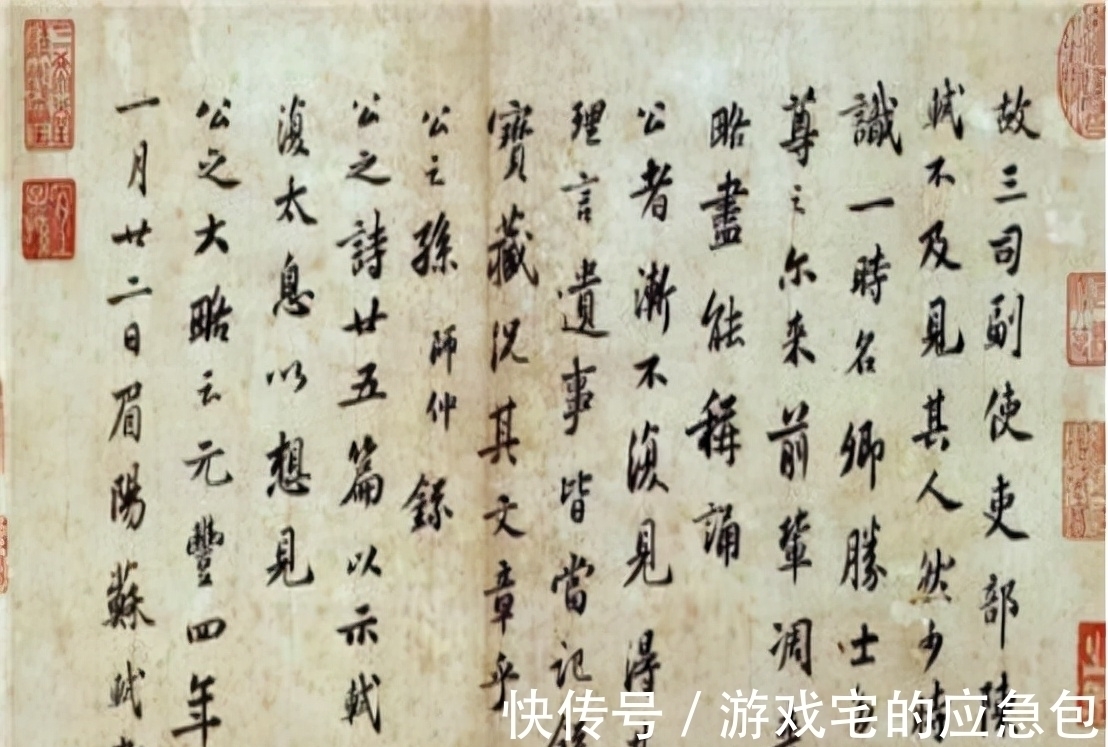 故三司副使吏部陳
軾不及見其人然少時
識一時名卿勝士
尊之尔来前輩凋
略盡能稱誦
公者漸不復見得
理言遺事皆當記
寶藏況其文章乎
公之孫師仲錄
公之詩廿五篇以示軾
復太息以想見
公之大略云元豐四年
一月廿二日眉陽蘇軾
快传号/游戏宅的应急包